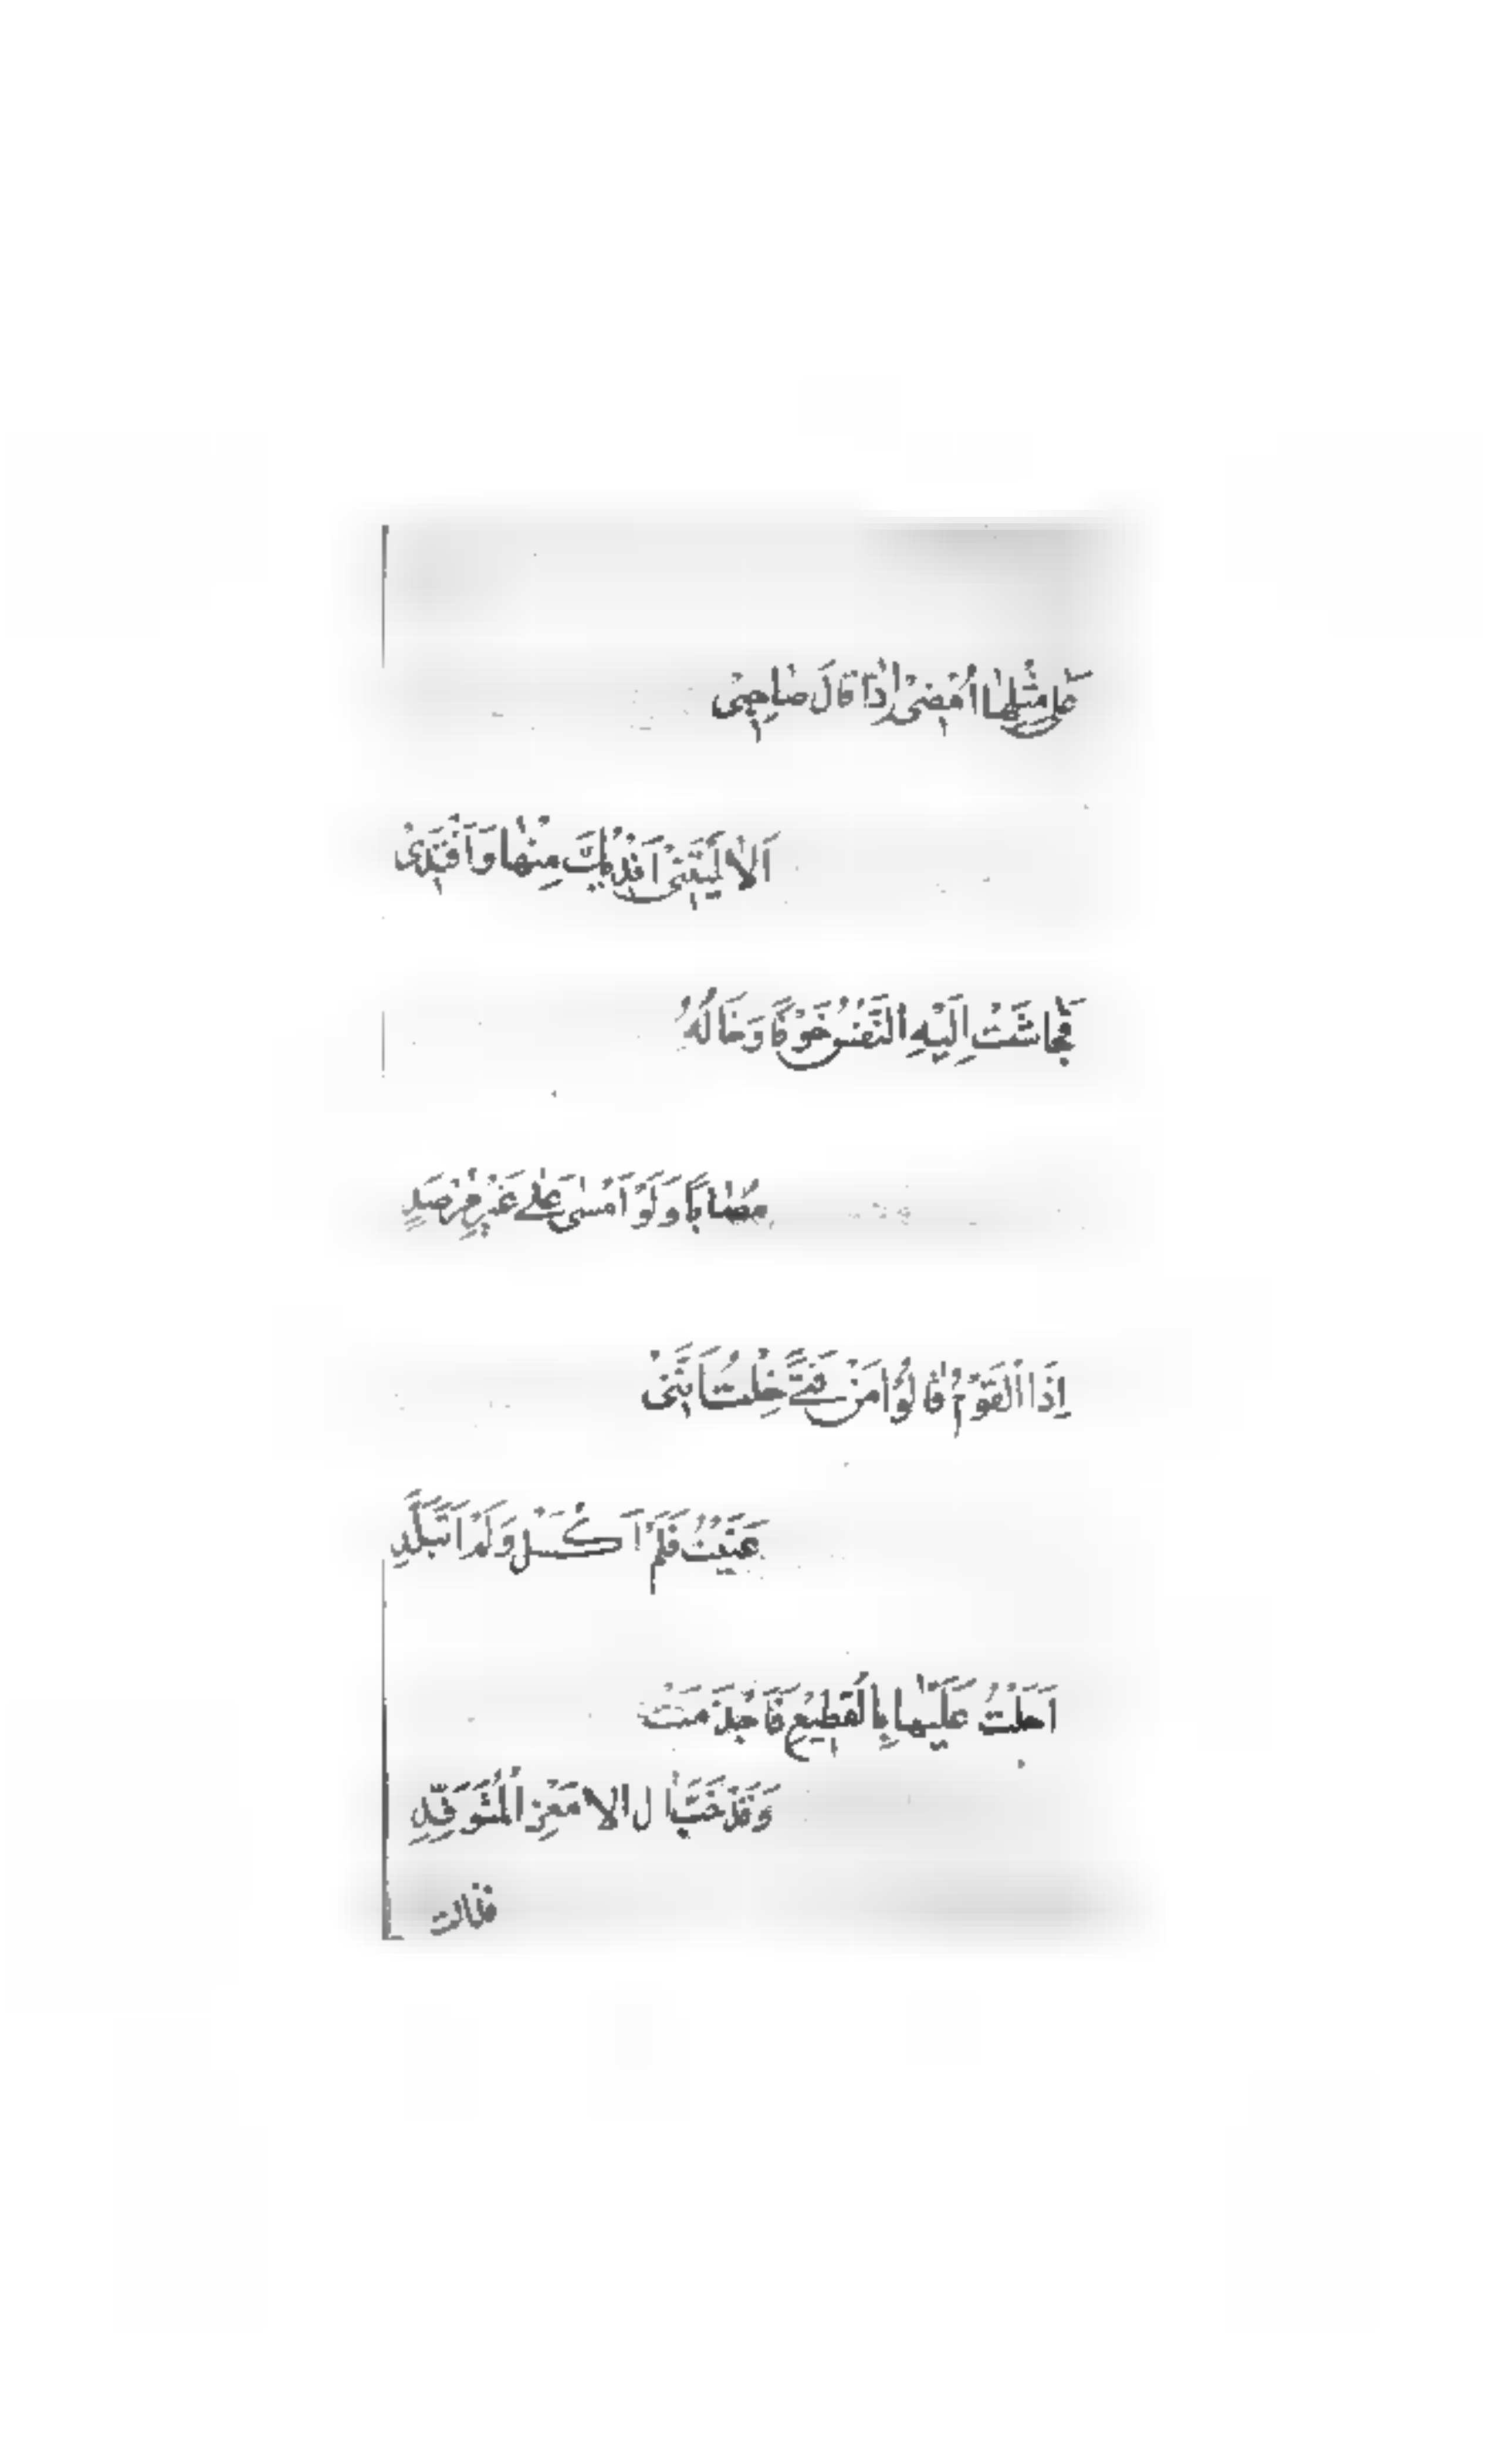 عَلٰى مِثْلِهٰا اَمْضِىْ اِذٰا قٰالَ صٰاحِبِىْ
اَلاٰ لَيْتَنِىْ اَفْدِيْكَ مِنْهٰا وَاَفْتَدِىْ
فَجٰاشَتْ اِلَيْهِ النَّفْسُ خَوْفًا وَخٰالَهُ
مُصٰابًا وَلَوْ اَمْسٰى عَلٰى غَيْرِ مَرْصَدٍ
اِذَا الْقَوْمُ قٰالُوْا مَنْ فَتًى خِلْتُ اَنَّنِىْ
عُنِيْتُ فَلَمْ اَكْسَلْ وَلَمْ اَتَبَلَّدِ
اَحَلْتُ عَلَيْهٰا بِالْقَطِيْعِ فَاَجْذَمَتْ
وَقَدْ خَبَّ اٰلُ الاَمْعَزِ الْمُتَوَقِّدِ
فذالت